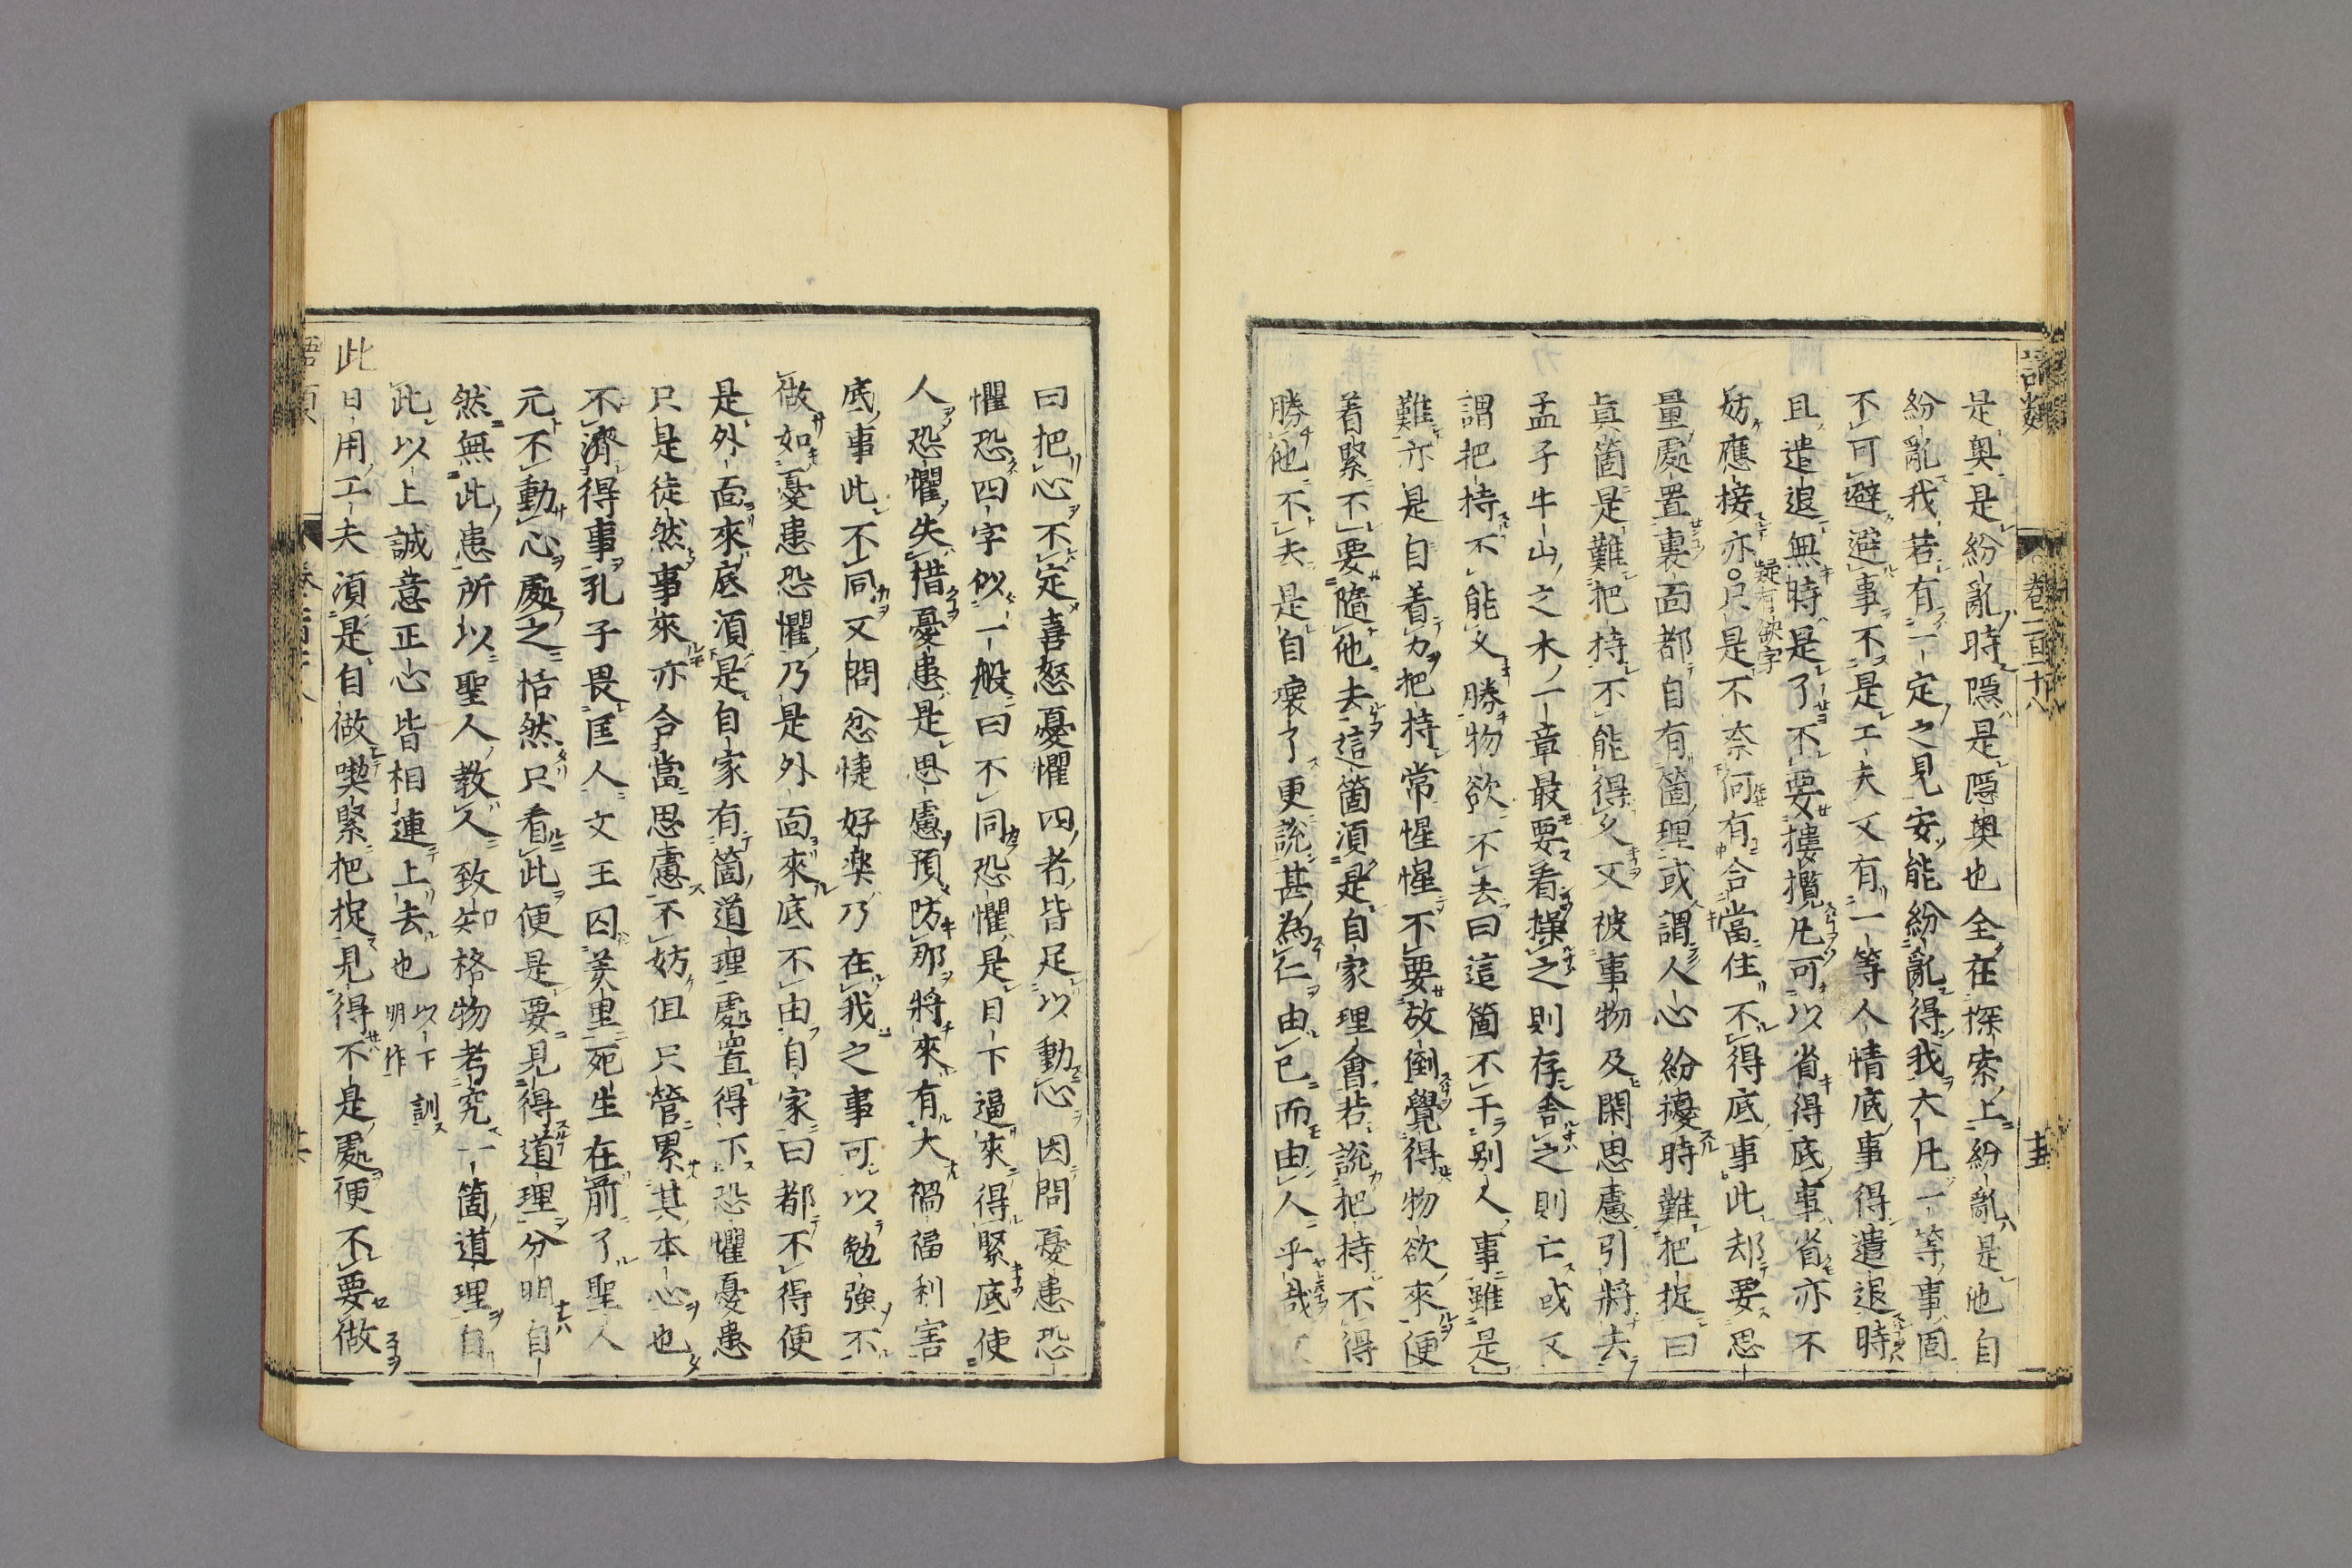 語類 卷一百十八
是奧是紛亂時隱是隱奧也全在探索上紛亂是他自
紛亂我若有一定之見安能紛亂得我大凡一等事固
不可避避事不是工夫又有一等人情底事得遣退時
且遣退無時是了不要摟攬凡可以省得底事省亦不
妨應接亦○只是不奈何有合當住不得底事此却要思
疑有缺字
量處置裏面都自有箇理或謂人心紛擾時難把捉曰
眞箇是難把持不能得久又被事物及閑思慮引將去
孟子牛山之木一章最要看操之則存舍之則亡或又
謂把持不能久勝物欲不去曰這箇不干别人事雖是
難亦是自着力把持常惺惺不要放倒覺得物欲來便
着緊不要隨他去這箇須是自家理會若說把持不得
勝他不去是自壞了更說甚為仁由己而由人乎哉
曰把心不定喜怒憂懼四者皆足以動心因問憂患恐
懼恐四字似一般曰不同恐懼是目下逼來得緊底使
人恐懼失措憂患是思慮預防那將來有大禍福利害
底事此不同又問忿懥好樂乃在我之事可以勉強不
做如憂患恐懼乃是外面來底不由自家曰都不得便
是外面來底須是自家有箇道理處置得下恐懼憂患
只是徒然事來亦合當思慮不妨但只管累其本心也
不濟得事孔子畏匡人文王囚羑里死生在前了聖人
元不動心處之恬然只看此便是要見得道理分明自
然無此患所以聖人教人致知格物考究一箇道理自
此以上誠意正心皆相連上去也 以下訓
明作
此
日用工夫須是自做喫緊把捉見得不是處便不要做